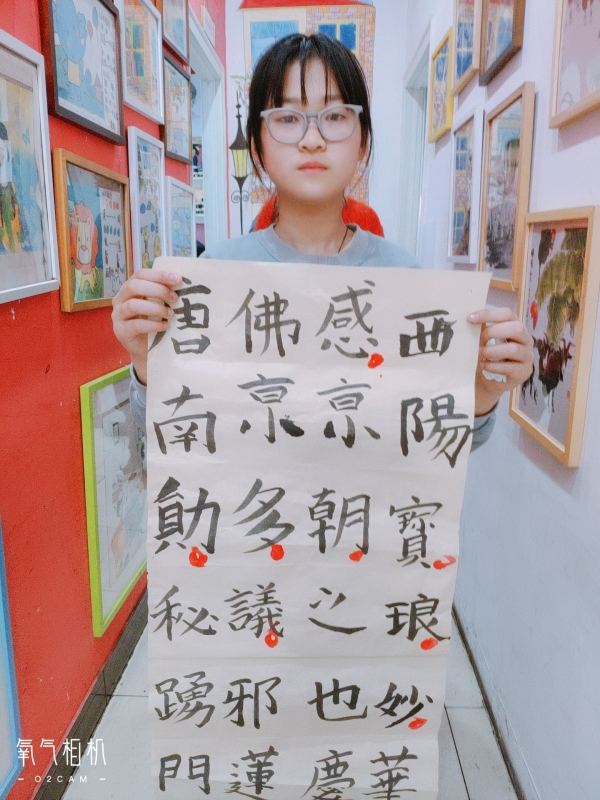 西陽寶琅妙華
感亰朝之也慶
佛亰多議邪蓮
唐南勛秘踴門
氧气相机
- O2CAM -